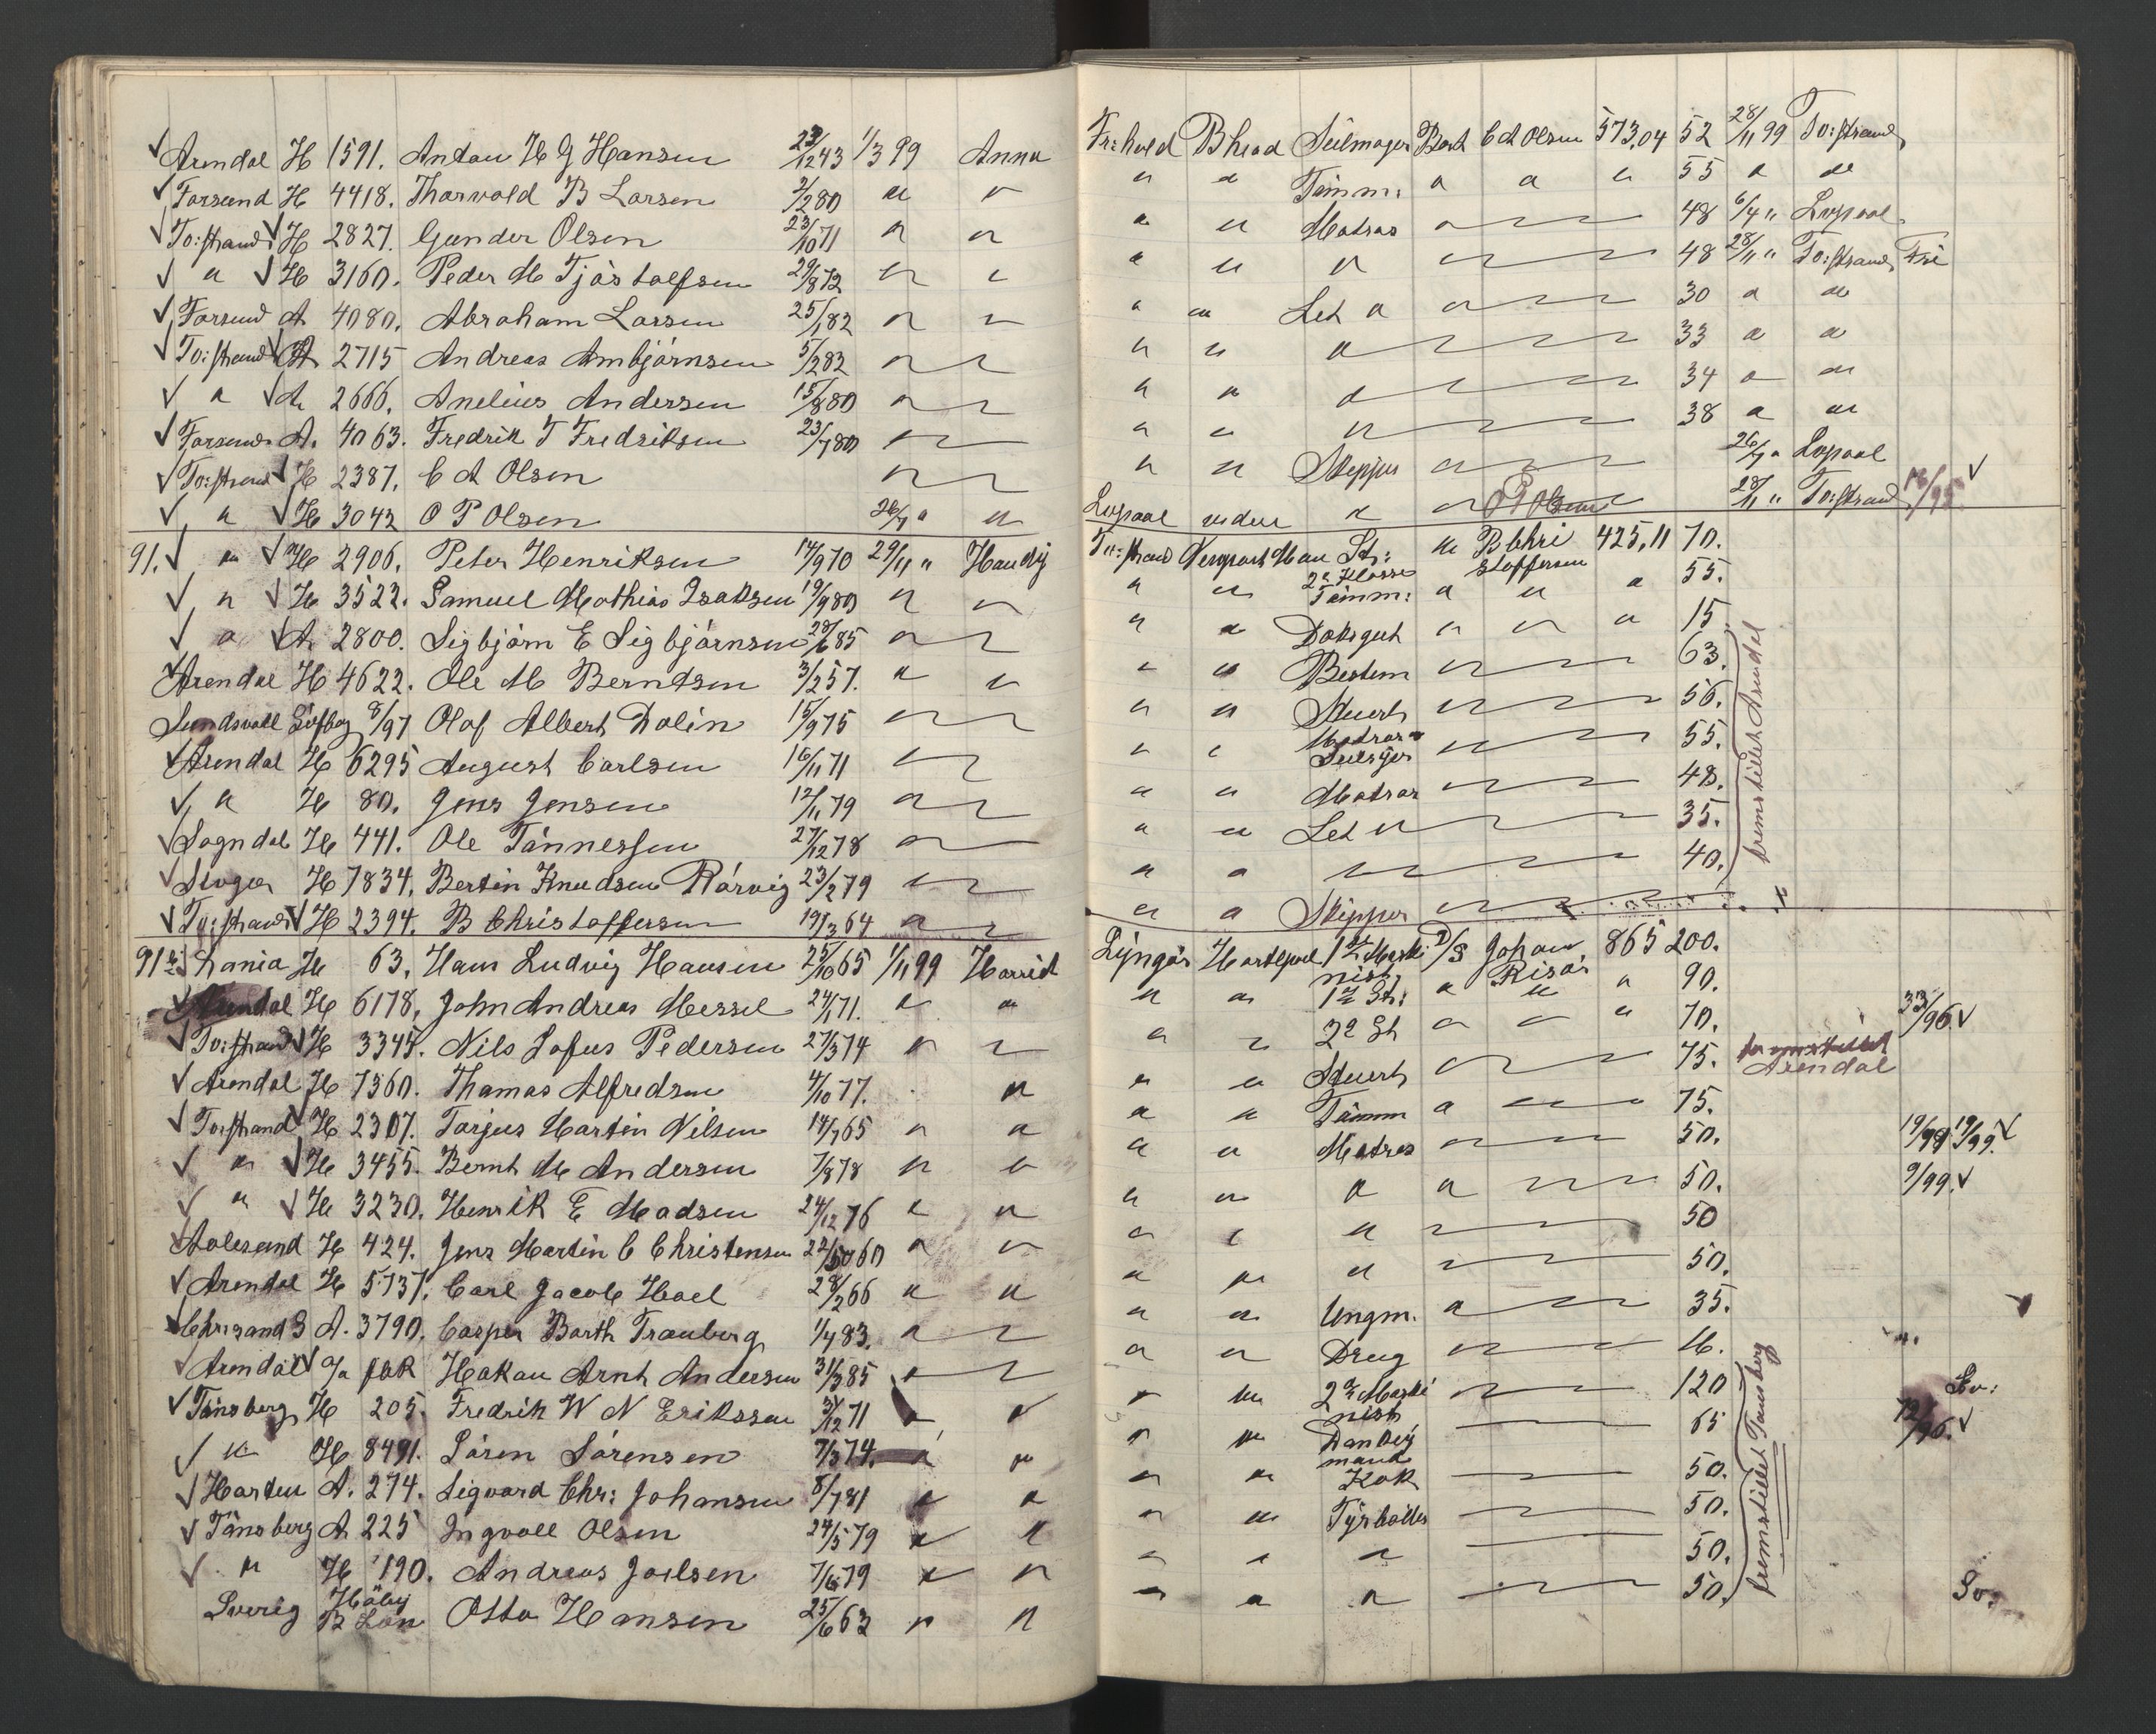 Arendal H 1591. Antau H G Hansen 23/12 43 1/3 99 Anna
Farsund H 4418. Tharvald B Larsen 2/2 80 " "
To:strand H 2827. Gunder Olsen 23/10 71 " "
" H 3160. Peder M Tjøstolfsen 29/8 72 " "
Farsund A 4080. Abraham Larsen 25/1 82 " "
To:strand A 2715 Andreas Ambjørnsen 5/2 82 "
" A 2666. Anelius Andersen 15/8 80 "
Farsund A. 4063. Fredrik T Fredriksen 23/7 80 "
To:strand H 2387. C A Olsen "
" H 3042 O P Olsen 26/7 " "
91. " H 2906. Peter Henriksen 14/9 70 29/11 "
" H 3522. Samuel Mathias Isaksen 19/9 80 " "
" A 2800. Sigbjørn E Sigbjørnsen 28/6 85 "
Arendal H 4622. Ole M Berndsen 3/2 57. " "
Sundsvall 8/97 Olof Albert Dolin 15/9 75 "
Arendal H 6295 August Carlsen 16/11 71 "
" H 80. Jens Jensen 12/11 79 "
Sogndal H 441. Ole Tønnessen 27/12 78 "
H 7834. Bertin Knudsen Rørvig 23/2 79 "
To:strand H 2394. B Christoffersen 19/3 64 "
91 H 63. Hans Ludvig Hansen 25/10 65 1/11 99
Arendal H 6178. John Andreas Messel 24/1 71. " "
To:strand H 3345. Nils Sofus Pedersen 27/3 74 "
Arendal H 7360. Thomas Alfredsen 4/10 77. "
To:strand H 2307. Tarjus Martin Nilsen 14/7 65 " "
" H 3455. Bernt M Andersen 7/8 78 " "
" H 3230. Henrik E Madsen 24/12 76 " "
Aalesund H 424. Jens Martin C Christensen 60 " "
Arendal H 5737. Carl Jacob Hoel 28/2 66 " "
Chrisand S A. 3790. Casper Barth Tranberg 1/4 83. "
Arendal Hakan Arnt Andersen 31/3 85 "
Tønsberg H 205. Fredrik W N Eriksson 31/12 71 " "
" H 8491. Søren Sørensen 7/3 74. " "
Harten A. 274. Sigvard Chr: Johansen 8/7 81 " "
Tønsberg A 225 Ingvall Olsen 24/5 79 " "
" H 190. Andreas Joelsen 7/6 79 " "
Sverig Otto Hansen 25/6 63 " "
Fr:hald Bhead Seilmager Bark C A Olsen 573,04 52 28/11 99 To:strand
" " Tømm: " " " 55 " "
" " Matros " 48 6/4 " Lvpool
" " " " 48 28/11 " To:strand Fri
" " Let " " 30 " "
" " " 33 " "
" " " 34 " "
" " " 38 " "
" " Skipper " 26/7 " Lvpool
Lvpool " " O P Olsen 28/11 " To:strand
To:strand Newport Man St: " B Chri 425,11 70.
stoffersen
" " 2n Klasse
Tømm: " " " 55.
" " Doksgut " " " 15.
" " Bestm " 63.
" " Stuert " 56.
" " Matros
" 55.
" " Matros " 48.
" " Let " 35.
" " " 40.
" " Skipper "
fremstillet Arendal
Lyngør Hartlepool 1ste Maski D/S Johan 865 200.
nist Risør
" " 1ste St: " " " 90.
" " 2n St " " " 70. 33/96.
" " Stuert " 75. fremstillet
Arendal
" " Tømm " 75.
" " Matros " 50. 19/98 19/99.
" " " " 50. 9/99.
" " " 50
" " " 50.
" " Ungm. " 35.
" " Dreng " 16.
" " 2n Maski " 120 Sv:
nist
" " Donkey 65 12/96.
mand
" " Kok 50.
" " Fyrbøder 50.
" " " 50.
" " " 50. Sv.
fremstillet Tønsberg